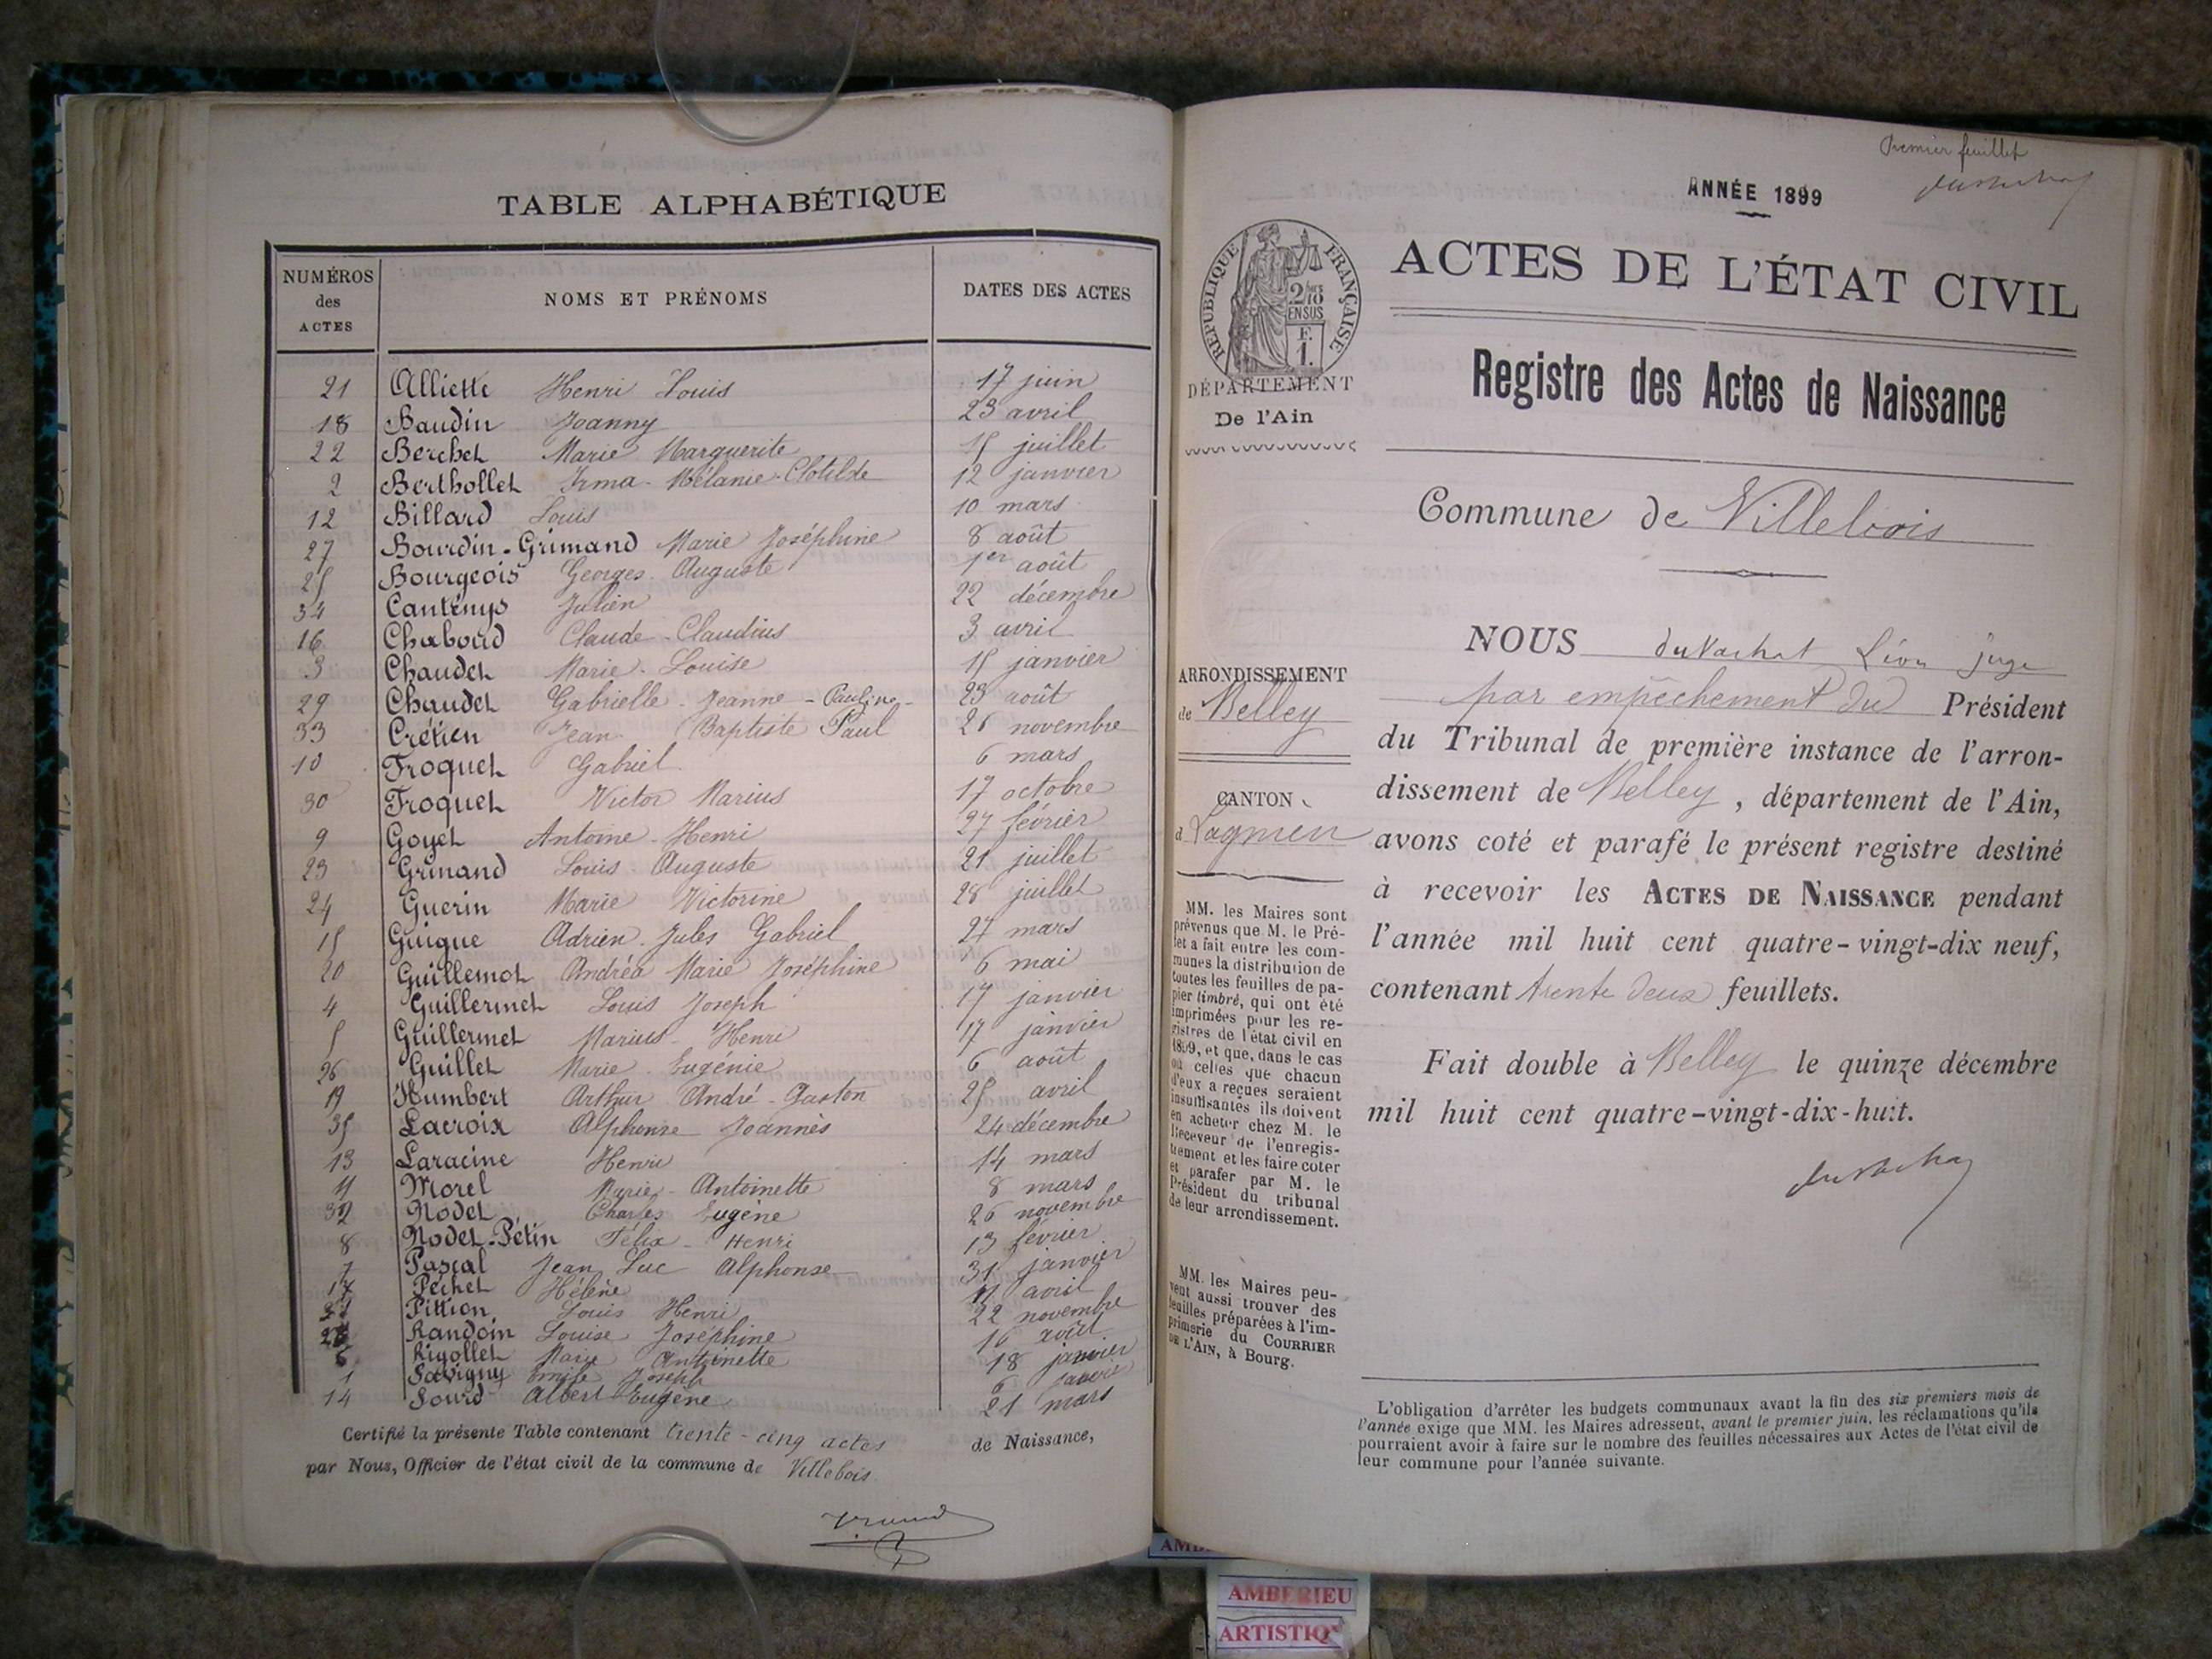 TABLE ALPHABÉTIQUE
NUMÉROS des ACTES NOMS ET PRÉNOMS DATES DES ACTES
21 Alliette Henri Louis 17 juin
18 Baudin Joanny 23 avril
22 Berchet Marie Marguerite 15 juillet
2 Berthollet Irma - Mélanie - Clotilde 12 janvier
12 Billard Louis 10 mars
27 Bourdin-Grimand Marie Joséphine 8 août
25 Bourgeois Georges Auguste 1er août
34 Canténys Julien 22 décembre
16 Chaboud Claude - Claudius 3 avril
3 Chaudet Marie - Louise 15 janvier
29 Chaudet Gabrielle - Jeanne - Pauline 23 août
33 Crétien Jean Baptiste Paul 26 novembre
10 Froquet Gabriel 6 mars
30 Froquet Victor Marius 17 octobre
9 Goyet Antoine - Henri 27 février
23 Grimand Louis Auguste 21 juillet
24 Guerin Marie Victorine 28 juillet
15 Guigue Adrien Jules Gabriel 27 mars
20 Guillemot Andréa Marie Joséphine 6 mai
4 Guillermet Louis Joseph 17 janvier
5 Guillermet Marius - Henri 17 janvier
26 Guillet Marie - Eugénie 6 août
19 Humbert Arthur André - Gaston 25 avril
35 Lacroix Alphonse Joannès 24 décembre
13 Laracine Henri 14 mars
11 Morel Marie - Antoinette 8 mars
32 Nodet Charles Eugène 26 novembre
8 Nodet-Pétin Félix - Henri 13 février
7 Pascal Jean Luc Alphonse 31 janvier
17 Péchet Hélène 11 avril
Pittion Louis Henri 22 novembre
28 Randoin Louise Joséphine 16 août
6 Rigollet Marie Antoinette 18 janvier
1 Savigny Emile Joseph 6 janvier
14 Sourd Albert Eugène 21 mars
Certifié la présente Table contenant trente-cinq actes de Naissance,
par Nous, Officier de l'état civil de la commune de Villebois
Premier feuillet
ANNÉE 1899
RÉPUBLIQUE FRANÇAISE
2/10 EN SUS
F. 1.
ACTES DE L'ÉTAT CIVIL
DÉPARTEMENT
De l'Ain
Registre des Actes de Naissance
Commune de Villebois
ARRONDISSEMENT
de Belley
CANTON
d Lagnieu
MM. les Maires sont
prévenus que M. le Pré-
fet a fait entre les com-
munes la distribution de
toutes les feuilles de pa-
pier timbré, qui ont été
imprimées pour les re-
gistres de l'état civil en
1899, et que, dans le cas
où celles que chacun
d'eux a reçues seraient
insuffisantes ils doivent
en acheter chez M. le
Receveur de l'enregis-
trement et les faire coter
et parafer par M. le
Président du tribunal
de leur arrondissement.
MM. les Maires peu-
vent aussi trouver des
feuilles préparées à l'im-
primerie du COURRIER
DE L'AIN, à Bourg.
NOUS duVachat Léon juge
par empêchement du Président
du Tribunal de première instance de l'arron-
dissement de Belley, département de l'Ain,
avons coté et parafé le présent registre destiné
à recevoir les ACTES DE NAISSANCE pendant
l'année mil huit cent quatre-vingt-dix neuf,
contenant trente deux feuillets.
Fait double à Belley le quinze décembre
mil huit cent quatre-vingt-dix-huit.
L'obligation d'arrêter les budgets communaux avant la fin des six premiers mois de
l'année exige que MM. les Maires adressent, avant le premier juin, les réclamations qu'ils
pourraient avoir à faire sur le nombre des feuilles nécessaires aux Actes de l'état civil de
leur commune pour l'année suivante.
AMBERIEU
ARTISTIQ